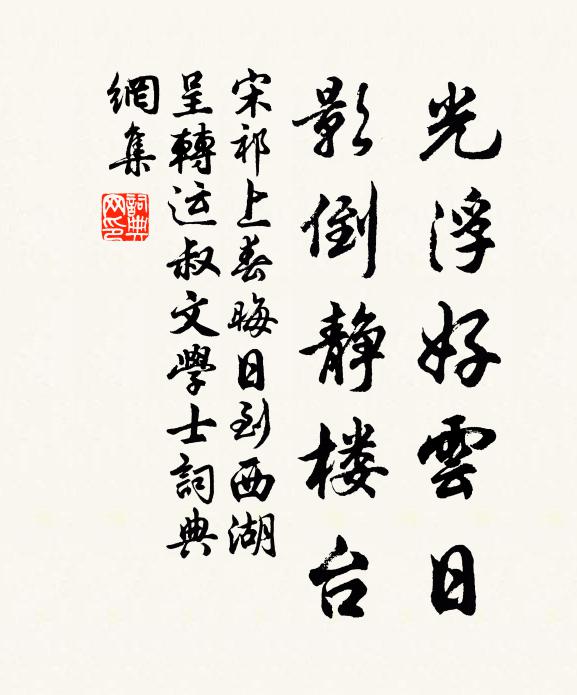 光浮好雲日
影倒静楼台
宋祁上春晦日到西湖
呈轉运叔文學士詞典
網集
詞典网印